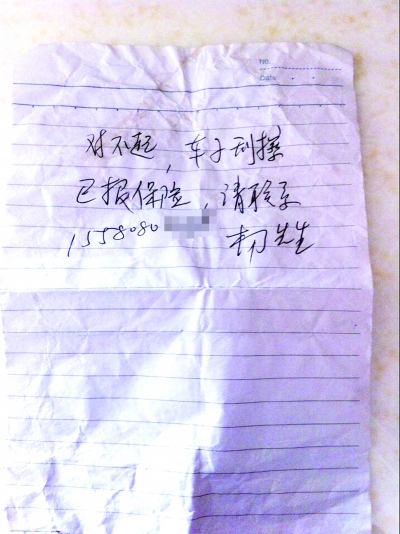 No.
Date
对不起，车子刮擦
已报保险，请联系
1558080
杨先生